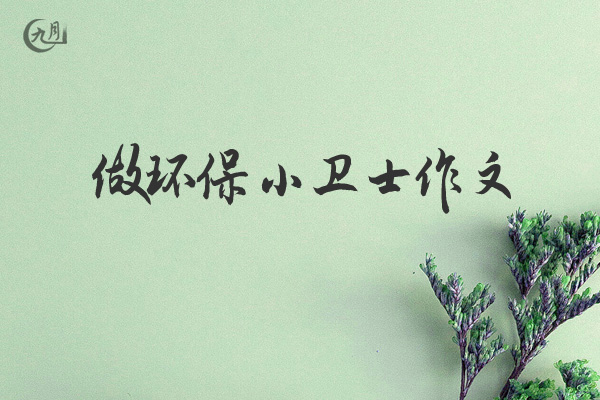 九月
做环保小卫士作文